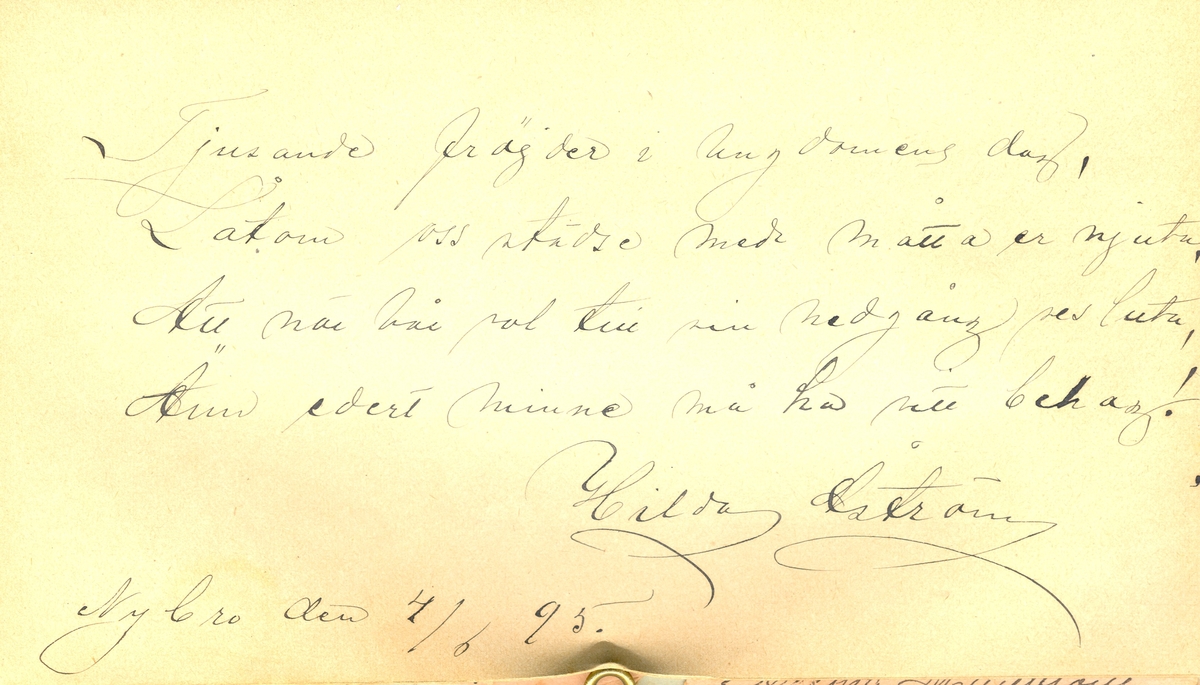 Tjusande fröjder i ungdomens dag,
Låtom oss städse med måtta er njuta,
Att när vår sol till sin nedgång ses luta,
Än edert minne må ha sitt behag!
Hilda Åström
Nybro den 4/6 95.